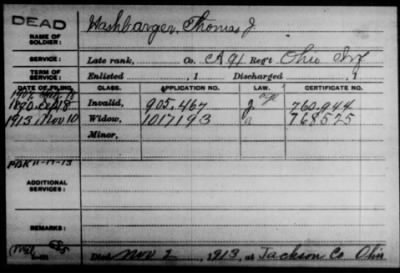 DEAD
NAME OF SOLDIER: Washbarger, Thomas J.
SERVICE: Late rank, Co. A 91 Reg't Ohio Inf
TERM OF SERVICE: Enlisted , 1 Discharged , 1
DATE OF FILING. CLASS. APPLICATION NO. LAW. CERTIFICATE NO.
1890, 18 Invalid, 905,467 G 760,944
1913, Nov 10 Widow, 1017193 768525
Minor,
PBK 11-17-13
ADDITIONAL SERVICES:
REMARKS:
Died Nov 2, 1913, at Jackson Co Ohio